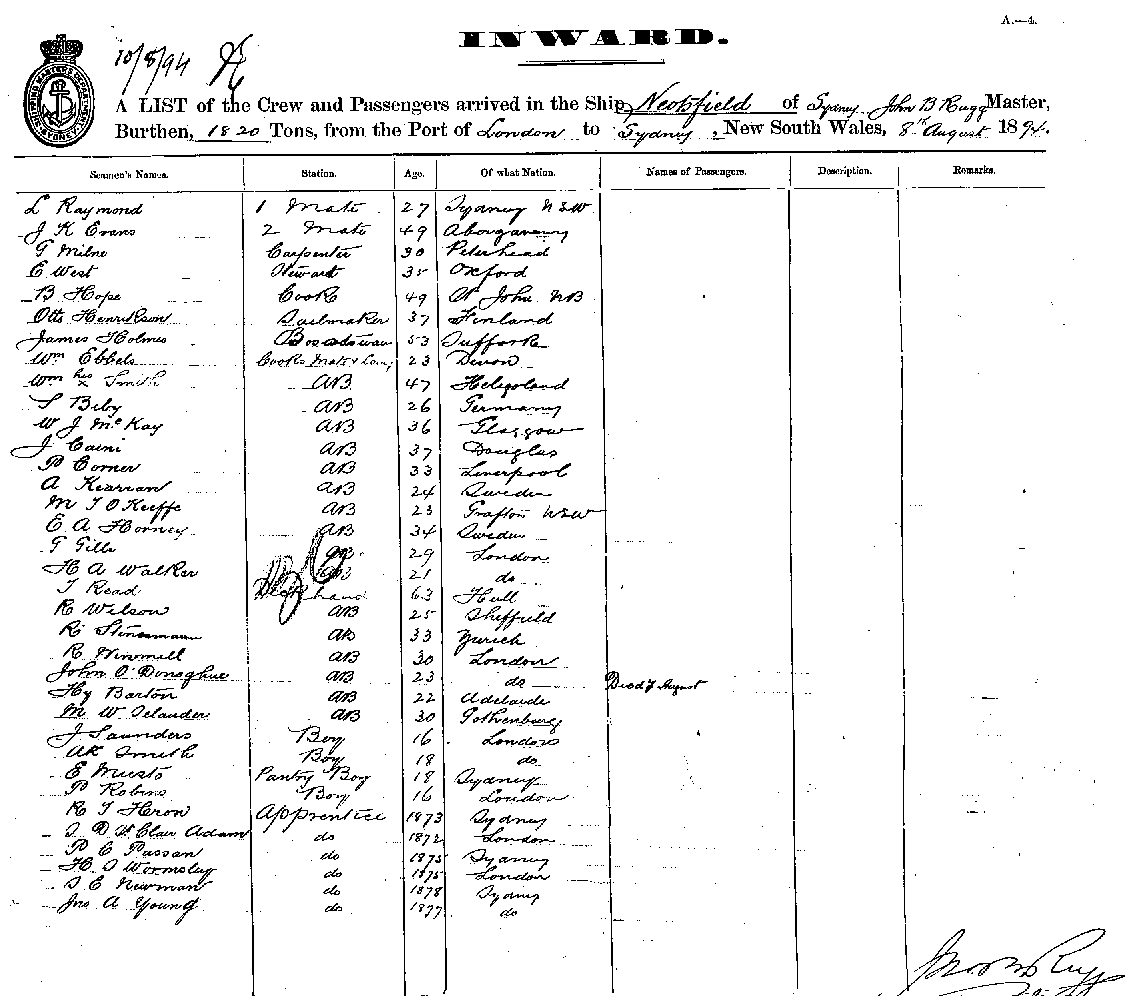 A.—4.
INWARD.
10/8/94
A LIST of the Crew and Passengers arrived in the Ship Neotsfield of Sydney John B Rugg Master,
Burthen, 1820 Tons, from the Port of London to Sydney, New South Wales, 8th August 1894.
Seamen's Names. Station. Age. Of what Nation. Names of Passengers. Description. Remarks.
L Raymond 1 Mate 27 Sydney NSW
J K Evans 2 Mate 49 Abergavenny
G Milne Carpenter 30 Peterhead
E West Steward 35 Oxford
B Hope Cook 49 St John NB
Otto Henrikson Sailmaker 37 Finland
James Holmes Boatswain 53 Suffolk
Wm Ebbels Cooks Mate & 23 Devon
Wm his x Smith AB 47 Heligoland
S Beby AB 26 Germany
W J McKay AB 36 Glasgow
J Caini AB 37 Douglas
P Corner AB 33 Liverpool
A Kearran AB 24 Sweden
M J O'Keeffe AB 23 Grafton NSW
E A Horney AB 34 Sweden
G Gills AB 29 London
H A Walker AB 21 do
T Read Deckhand 63 Hull
R Wilson AB 25 Sheffield
R AB 33 Zurich
R Winmill AB 30 London
John O'Donaghue AB 23 do Died 7 August
Hy Barton AB 22 Adelaide
M W Selander AB 30 Gothenburg
J Saunders Boy 16 London
AK Smith Boy 18 do
E Musto Pantry Boy 18 Sydney
P Robins Boy 16 London
R T Heron Apprentice 1873 Sydney
J D St Clair Adam do 1872 London
P E Passan do 1875 Sydney
H S Wormsley do 1875 London
S E Newman do 1878 Sydney
Jno A Young do 1877 do
Jno B Rugg